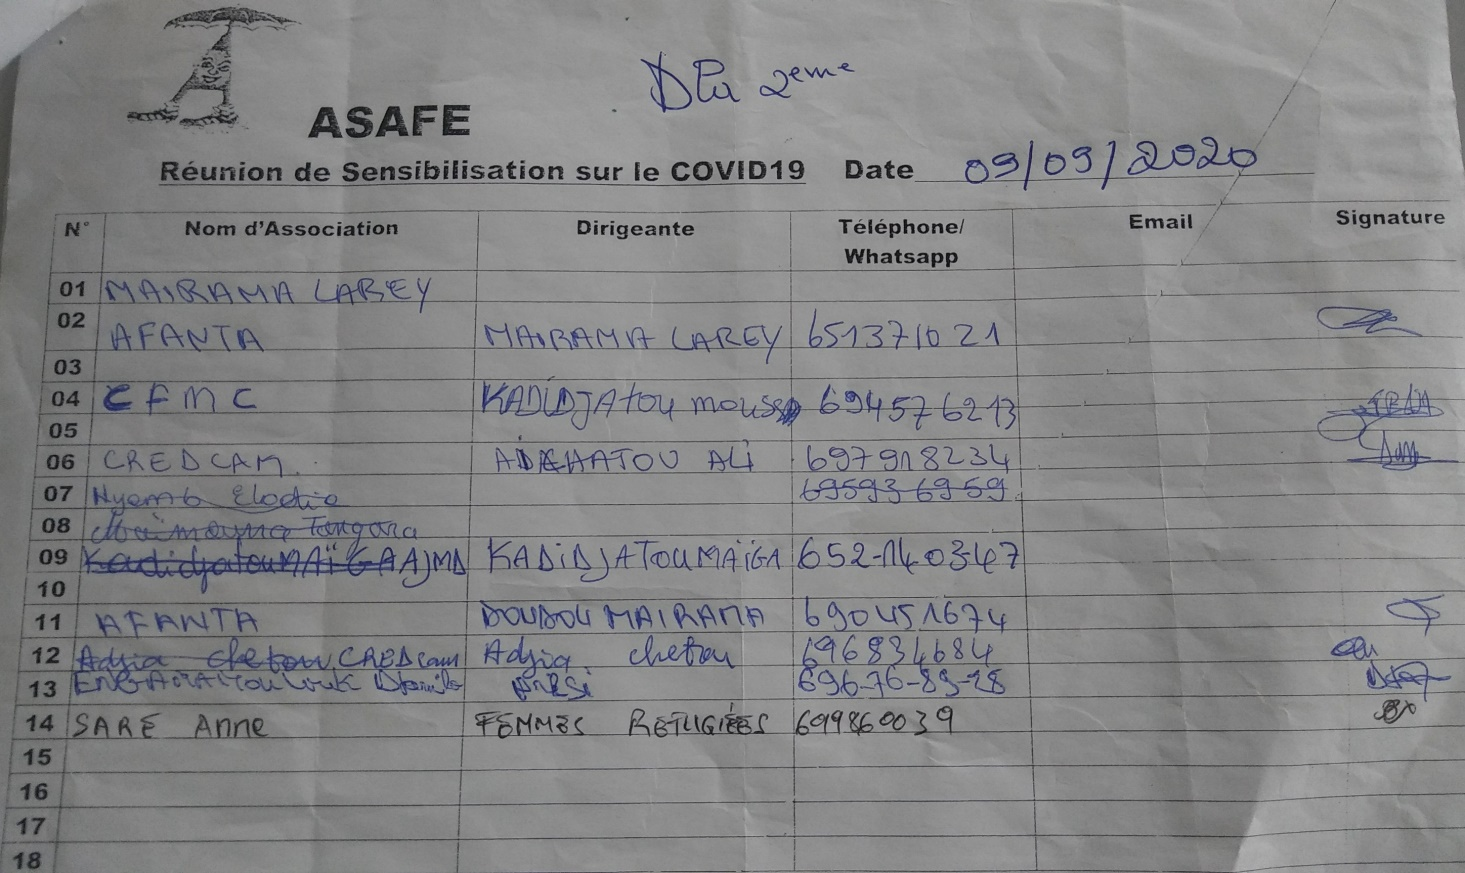 Dla 2eme
ASAFE
Réunion de Sensibilisation sur le COVID19 Date 09/09/2020
N° Nom d'Association Dirigeante Téléphone/ Whatsapp Email Signature
01 MAIRAMA LAREY
02 AFANTA MAIRAMA LAREY 651371021
03
04 CFMC KADIDJAtou mouss 694576213
05
06 CREDCAM. AICHATOU ALi 697918234
07 Nyemb Elodie 695936959
08 Maimouna Tangara
09 KadidjatouMAÏGA AJMD KADiDJATOUMAÏGA 652-1403-47
10
11 AFANTA DOUDOU MAIRAMA 690451674
12 Adjia chetou CREDcam Adjia chetou 696834684
13 696-76-83-28
14 SARE Anne FEMMES REFUGIÉES 699860039
15
16
17
18